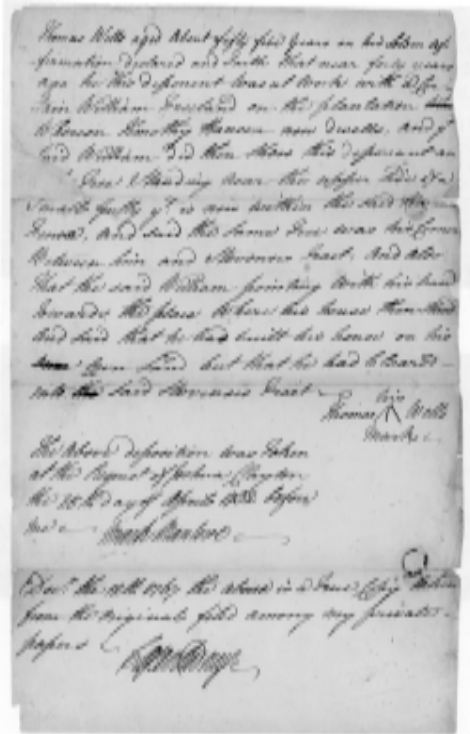 Thomas Wells aged about fifty five Years on his solem af-
firmation declared and saith that near forty years
ago he this deponent was at work with a
William on the plantation
Whereon Timothy Hanson now dwells, and yt
said William did then shew this deponant a
Tree Standing near the upper side of a
Small yt is now within the said
and said the same Tree was his Corner
Between him and Stevenses Tract, and also
That the said William pointing with his hand
towards the place where his house then stood
And said that he had built his house on his
own Land but that he had
into said Stevenses Tract
his
Thomas Wells
Mark
The Above deposition was taken
at the Request of Joshua Clayton
the day of April before
me Mark Manlove
the 1767 the above is a True Copy taken
from the original filed among my private
papers